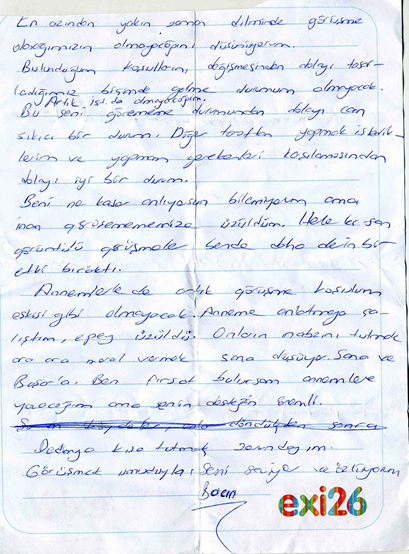 En azından yakın zaman diliminde görüşme
olacağımızın olmayacağını düşünüyorum.
Bulunduğum koşulların, değişmesinden dolayı tasar-
ladığımız biçimde gelme durumum olmayacak.
Artık ist.da olmayacağım.
Bu seni görememe durumundan dolayı can
sıkıcı bir durum. Diğer taraftan yapmak istedik-
lerim ve yapmam gerekenleri karşılamasından
dolayı iyi bir durum.
Beni ne kadar anlıyorsun bilemiyorum ama
inan görüşemememize üzüldüm. Hele ki son
görüntülü görüşmeler bende daha derin bir
etki bıraktı.
Annemlerle de artık görüşme koşulum
eskisi gibi olmayacak. Anneme anlatmaya ça-
lıştım, epey üzüldü. Onların nabzını tutmak
ara ara moral vermek sana düşüyor. Sana ve
Başar'a. Ben fırsat bulursam annemlere
yazacağım ama senin desteğin önemli.
döndükten sonra
kısa tutmak zorundayım.
Görüşmek umuduyla, Seni seviyor ve özlüyorum
exi26